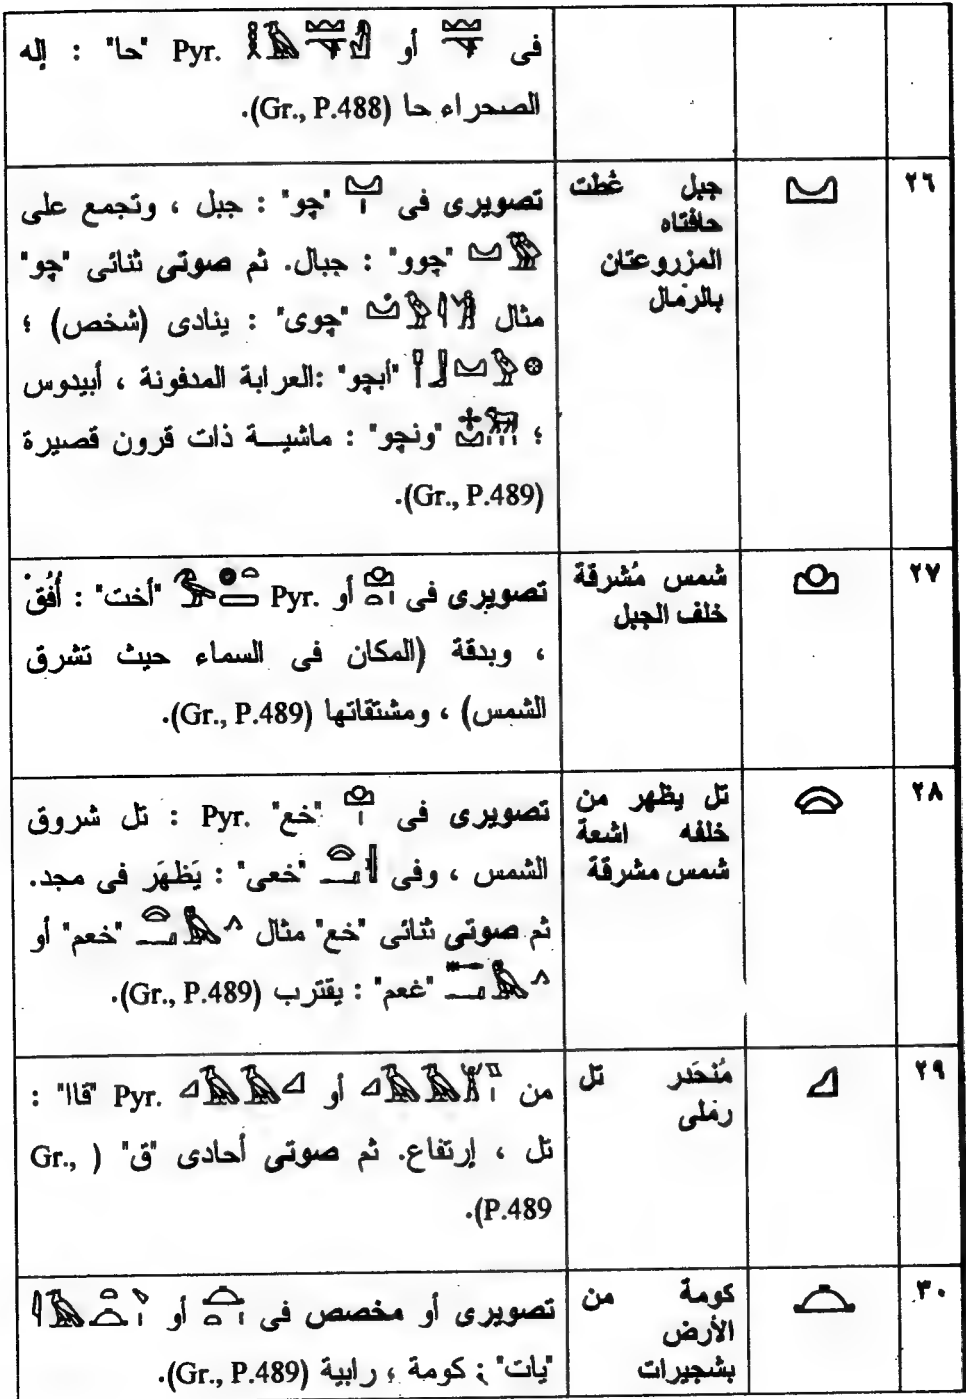 فى أو Pyr. "حا" : إله
الصحراء حا (Gr., P.488).
٢٦
جبل غُطت
حافتاه
المزروعتان
بالرمال
تصويرى فى "چو" : جبل ، وتجمع على
"چوو" : جبال. ثم صوتى ثنائى "چو"
مثال "چوى" : ينادى (شخص) ؛
"أبچو" :العرابة المدفونة ، أبيدوس
؛ "ونچو" : ماشيـــة ذات قرون قصيرة
(Gr., P.489).
٢٧
شمس مُشرقة
خلف الجبل
تصويرى فى أو Pyr. "أخت" : أُفُقْ
، وبدقة (المكان فى السماء حيث تشرق
الشمس) ، ومشتقاتها (Gr., P.489).
٢٨
تل يظهر من
خلفه اشعة
شمس مشرقة
تصويرى فى "خع" Pyr. : تل شروق
الشمس ، وفى "خعى" : يَظهَر فى مجد.
ثم صوتى ثنائى "خع" مثال "خعم" أو
"غعم" : يقترب (Gr., P.489).
٢٩
مُنحَدر تل
رملى
من أو Pyr. "قاا" :
تل ، إرتفاع. ثم صوتى أحادى "ق" ( Gr.,
P.489).
٣٠
كومة من
الأرض
بشجيرات
تصويرى أو مخصص فى أو
"يات" : كومة ، رابية (Gr., P.489).